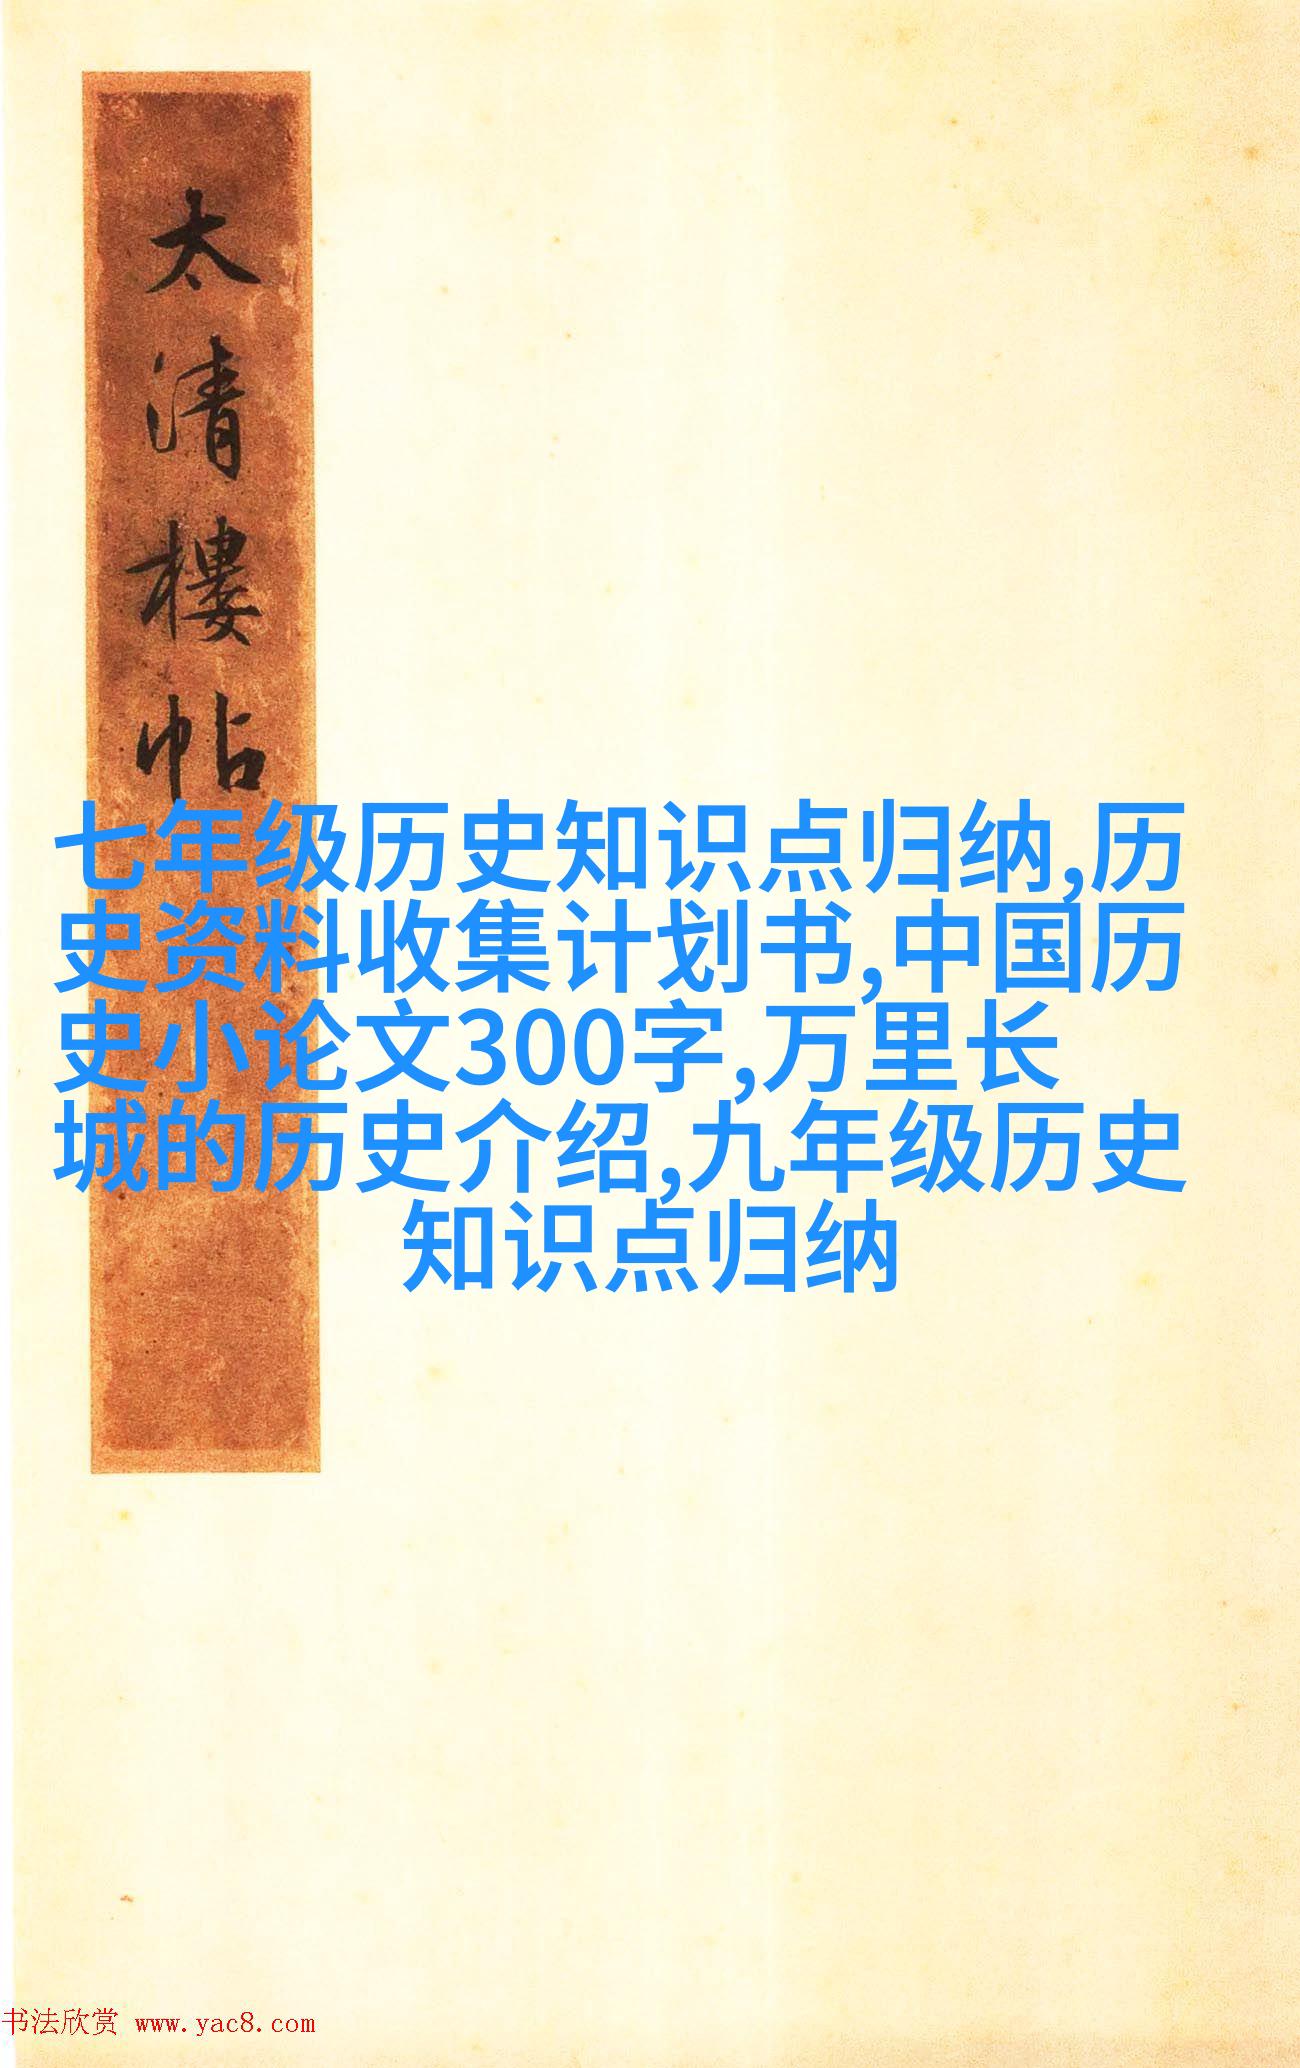 太清樓帖
七年级历史知识点归纳,历
史资料收集计划书,中国历
史小论文300字,万里长
城的历史介绍,九年级历史
知识点归纳
书法欣赏 www.yac8.com